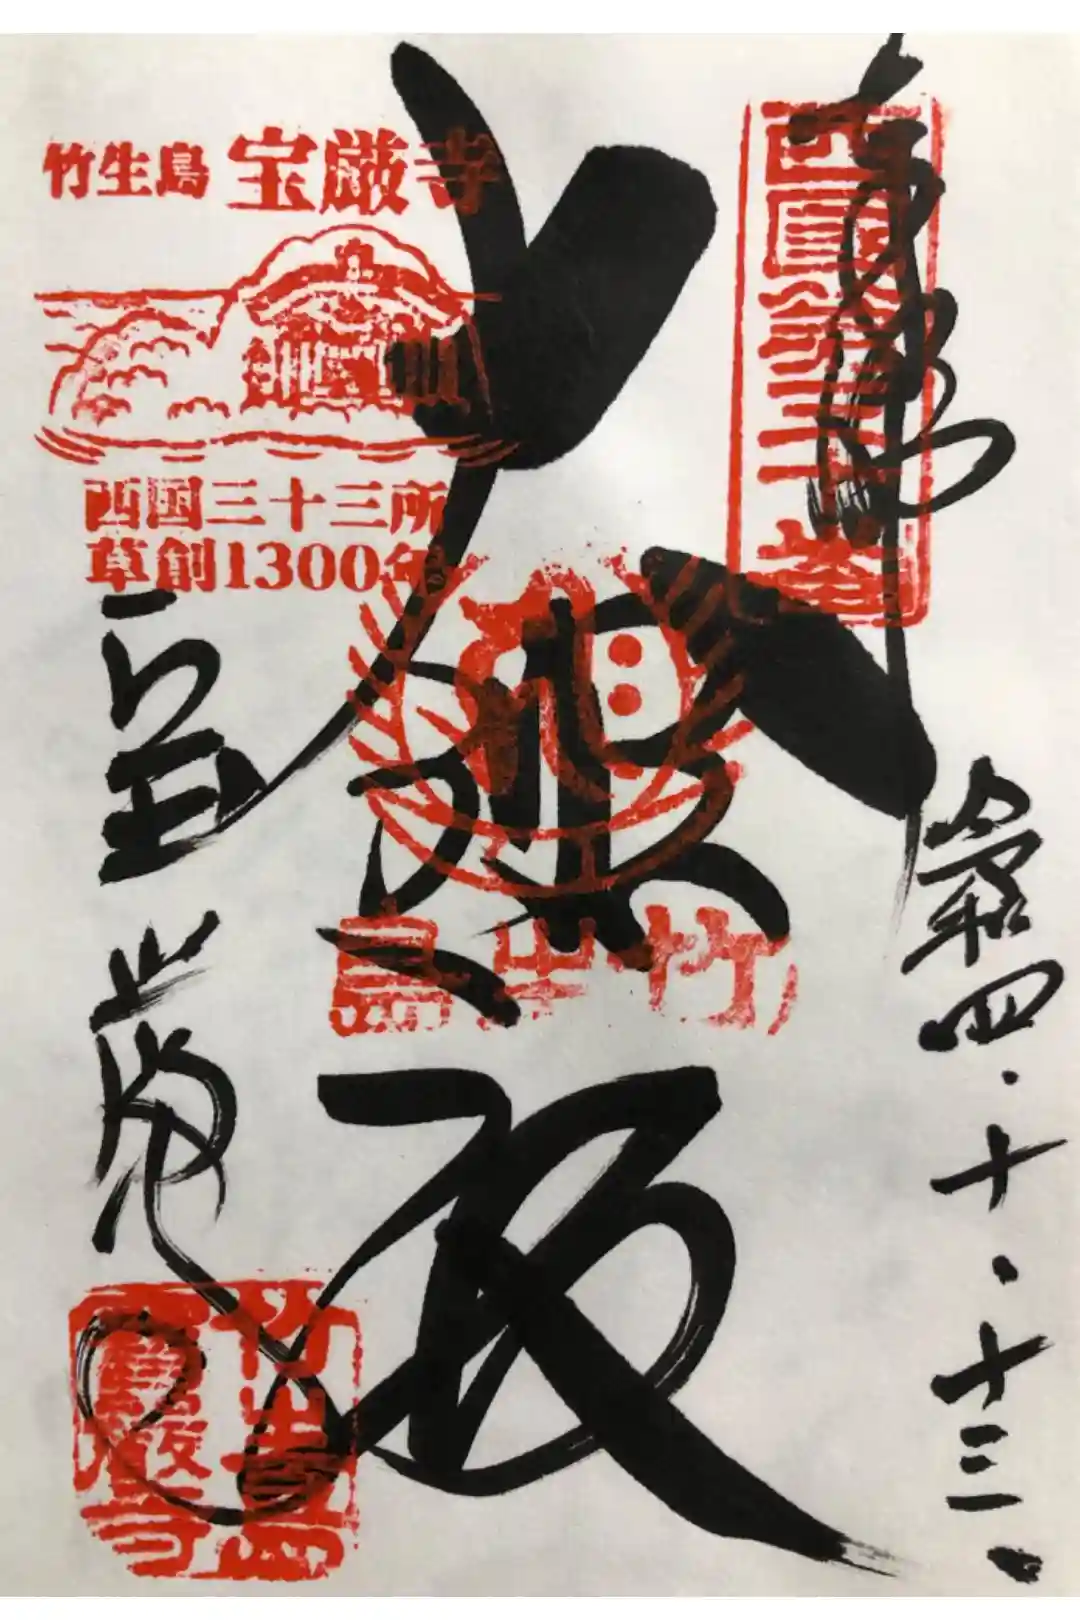 奉拝
西国第三十番
令和四・十・十三・
大悲殿
竹生島
竹生島 宝厳寺
西国三十三所
草創1300年
竹生島
寶嚴寺